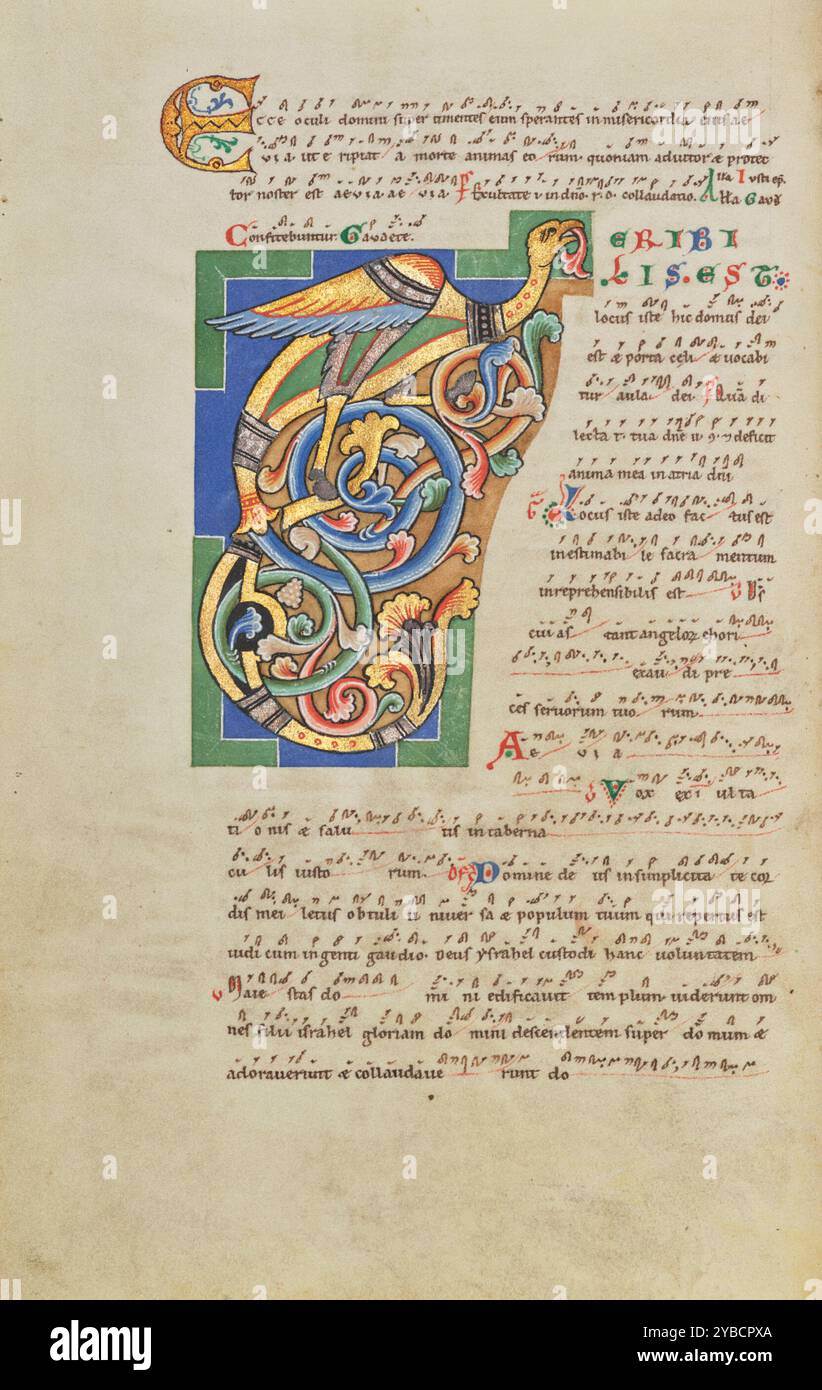 CCE oculi domini super timentes eum sperantes in misericordia eius ae
via ut e ripiat a morte animas eo rum quoniam adiutor æ protec
tor noster est aevia ae via collaudatio. Alla Iusti ep.
Confitebuntur. Gaudete.
TERIBI
LIS. EST
locus iste hic domus dei
est æ porta celi æ vocabi
tur aula dei Quā di
lecta t. tua dn̄e deficit
anima mea in atria dn̄i
Locus iste adeo fac tus est
inestimabi le sacra mentum
inreprehensibilis est
cui as tant angeloꝝ chori
exau di pre
ces servorum tuo rum
Ae v i a
Vox exi ulta
ti o nis æ salu tis in taberna
cu lis iusto rum. Domine de us in simplicita te cor
dis mei letus obtuli u niver sa æ populum tuum qui repertus est
vidi cum ingenti gaudio. deus ysrahel custodi hanc voluntatem
Maie stas do mi ni edificavit templum. viderunt om
nes filii israhel gloriam do mini descendentem super do mum æ
adoraverunt æ collaudave runt do
alamy
Image ID: 2YBCPXA
www.alamy.com